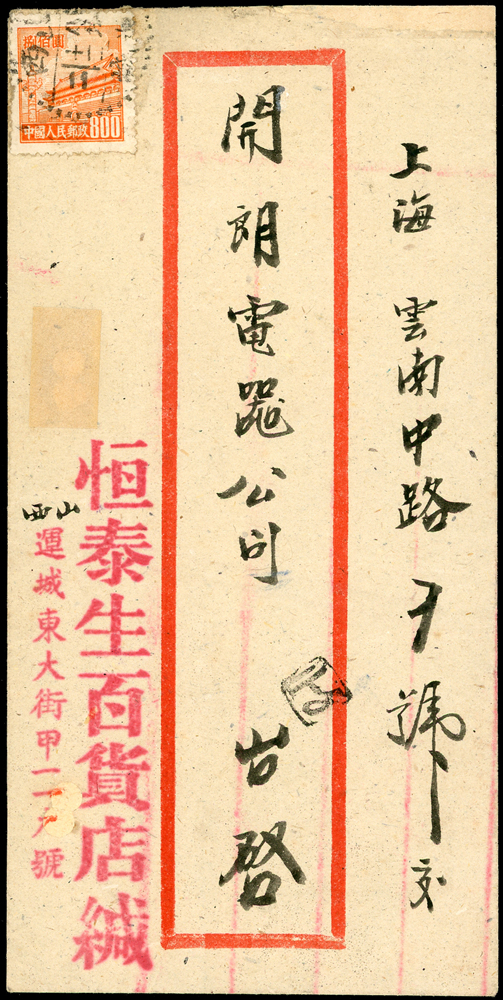 上海 雲南中路 號 交
開朗電器公司 台啓
恒泰生百貨店緘
山西
運城東大街甲一 號
捌佰圓
中國人民郵政 800